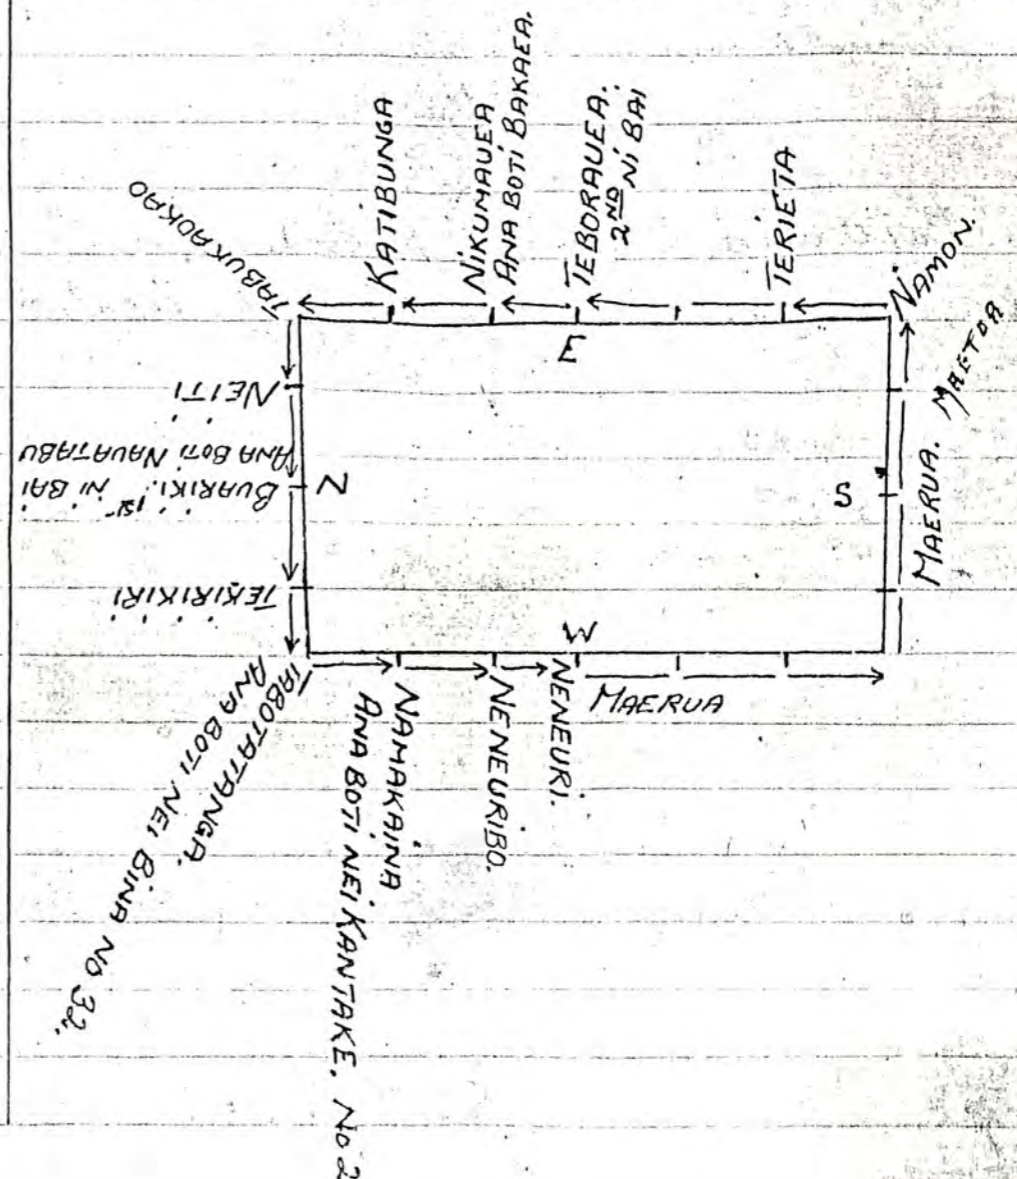 KATIBUNGA
NIKUMAUEA
ANA BOTI BAKAEA.
TEBORAUEA.
2ND NI BAI
TERIETA
NAMON.
MAETOA
MAERUA.
S
E
N
W
TABUKAOKAO
NEITI
BUARIKI. 1ST NI BAI
ANA BOTI NAUATABU
TEKIRIKIRI
TABOTATANGA.
ANA BOTI NEI BINA NO 32.
NAMAKAINA
ANA BOTI NEI KANTAKE. NO 2
NENEURIBO.
NENEURI.
MAERUA